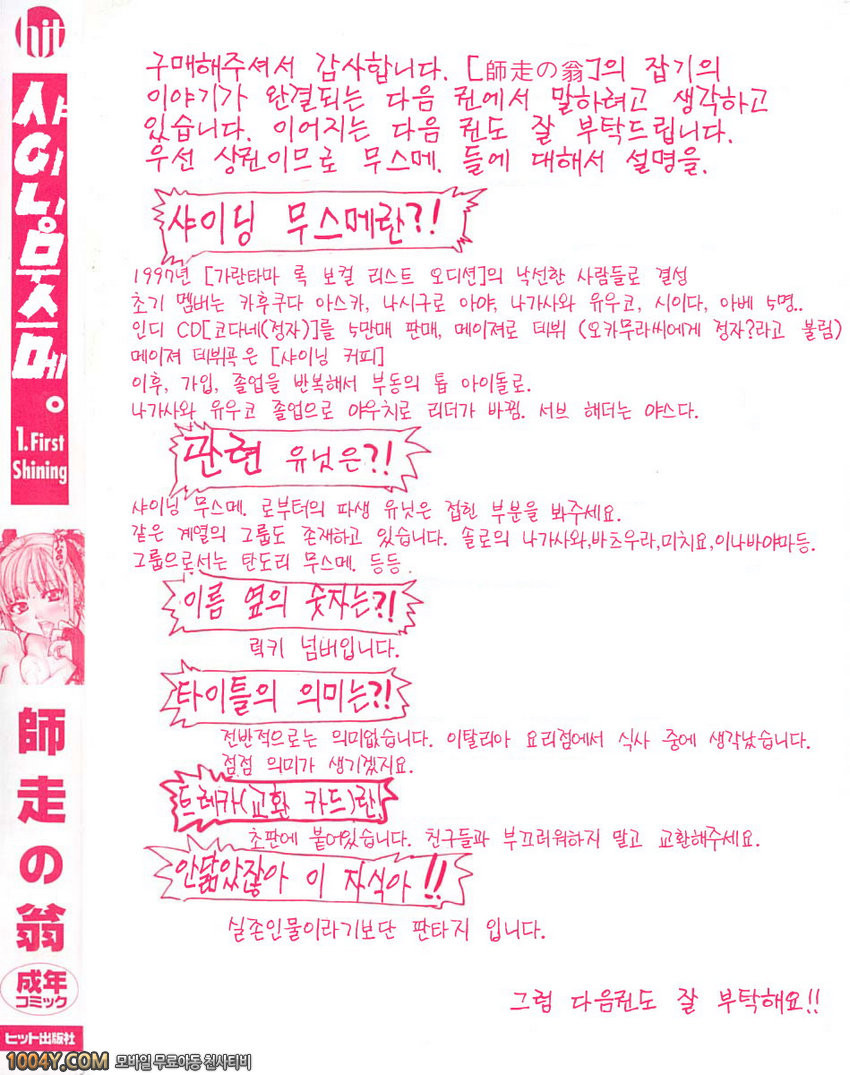 hit
샤이닝무스메。
1.First
Shining
師走の翁
成年
コミック
ヒット出版社
구매해주셔서 감사합니다. [師走の翁]의 잡기의
이야기가 완결되는 다음 권에서 말하려고 생각하고
있습니다. 이어지는 다음 권도 잘 부탁드립니다.
우선 상권이므로 무스메. 들에 대해서 설명을.
샤이닝 무스메란?!
1997년 [가란타마 록 보컬 리스트 오디션]의 낙선한 사람들로 결성
초기 멤버는 카후쿠다 아스카, 나시구로 아야, 나가사와 유우코, 시이다, 아베 5명..
인디 CD[코다네(정자)]를 5만매 판매, 메이져로 데뷔 (오카무라씨에게 정자?라고 불림)
메이져 데뷔곡은 [샤이닝 커피]
이후, 가입, 졸업을 반복해서 부동의 톱 아이돌로.
나가사와 유우코 졸업으로 야우치로 리더가 바뀜. 서브 해더는 야스다.
관련 유닛은?!
샤이닝 무스메. 로부터의 파생 유닛은 접힌 부분을 봐주세요.
같은 계열의 그룹도 존재하고 있습니다. 솔로의 나가사와,바츠우라,미치요,이나바야마등.
그룹으로서는 탄도리 무스메. 등등
이름 옆의 숫자는?!
럭키 넘버입니다.
타이틀의 의미는?!
전반적으로는 의미없습니다. 이탈리아 요리점에서 식사 중에 생각났습니다.
점점 의미가 생기겠지요.
트레카(교환 카드)란!
초판에 붙어있습니다. 친구들과 부끄러워하지 말고 교환해주세요.
안닮았잖아 이 자식아!!
실존인물이라기보단 판타지 입니다.
그럼 다음권도 잘 부탁해요!!
1004Y.COM 모바일 무료야동 천사티비